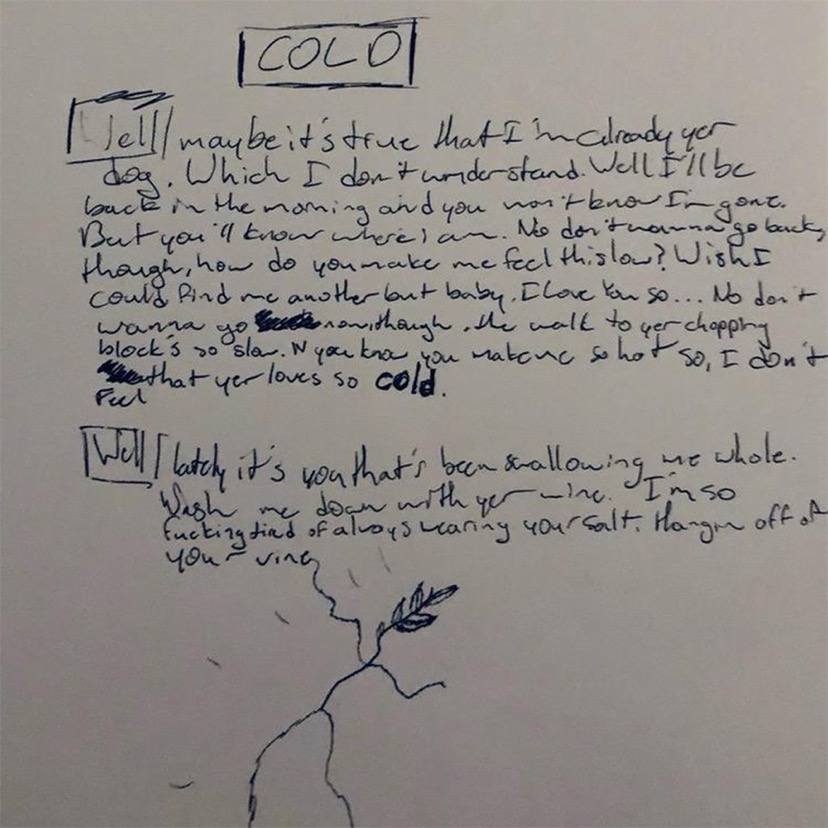 COLD
Well maybe it's true that I'm already yer
dog. Which I don't understand. Well I'll be
back in the morning and you won't know I'm gone.
But you'll know where I am. No don't wanna go back,
though, how do you make me feel this low? Wish I
could find me another but baby, I love You so... No don't
wanna go now though, the walk to yer chopping
block's so slow. N you know you make me so hot so, I don't
feel that yer loves so cold.
Well lately it's you that's been swallowing me whole.
Wash me down with yer wine. I'm so
fucking tired of always wearing your salt. Hangin off of
your vine